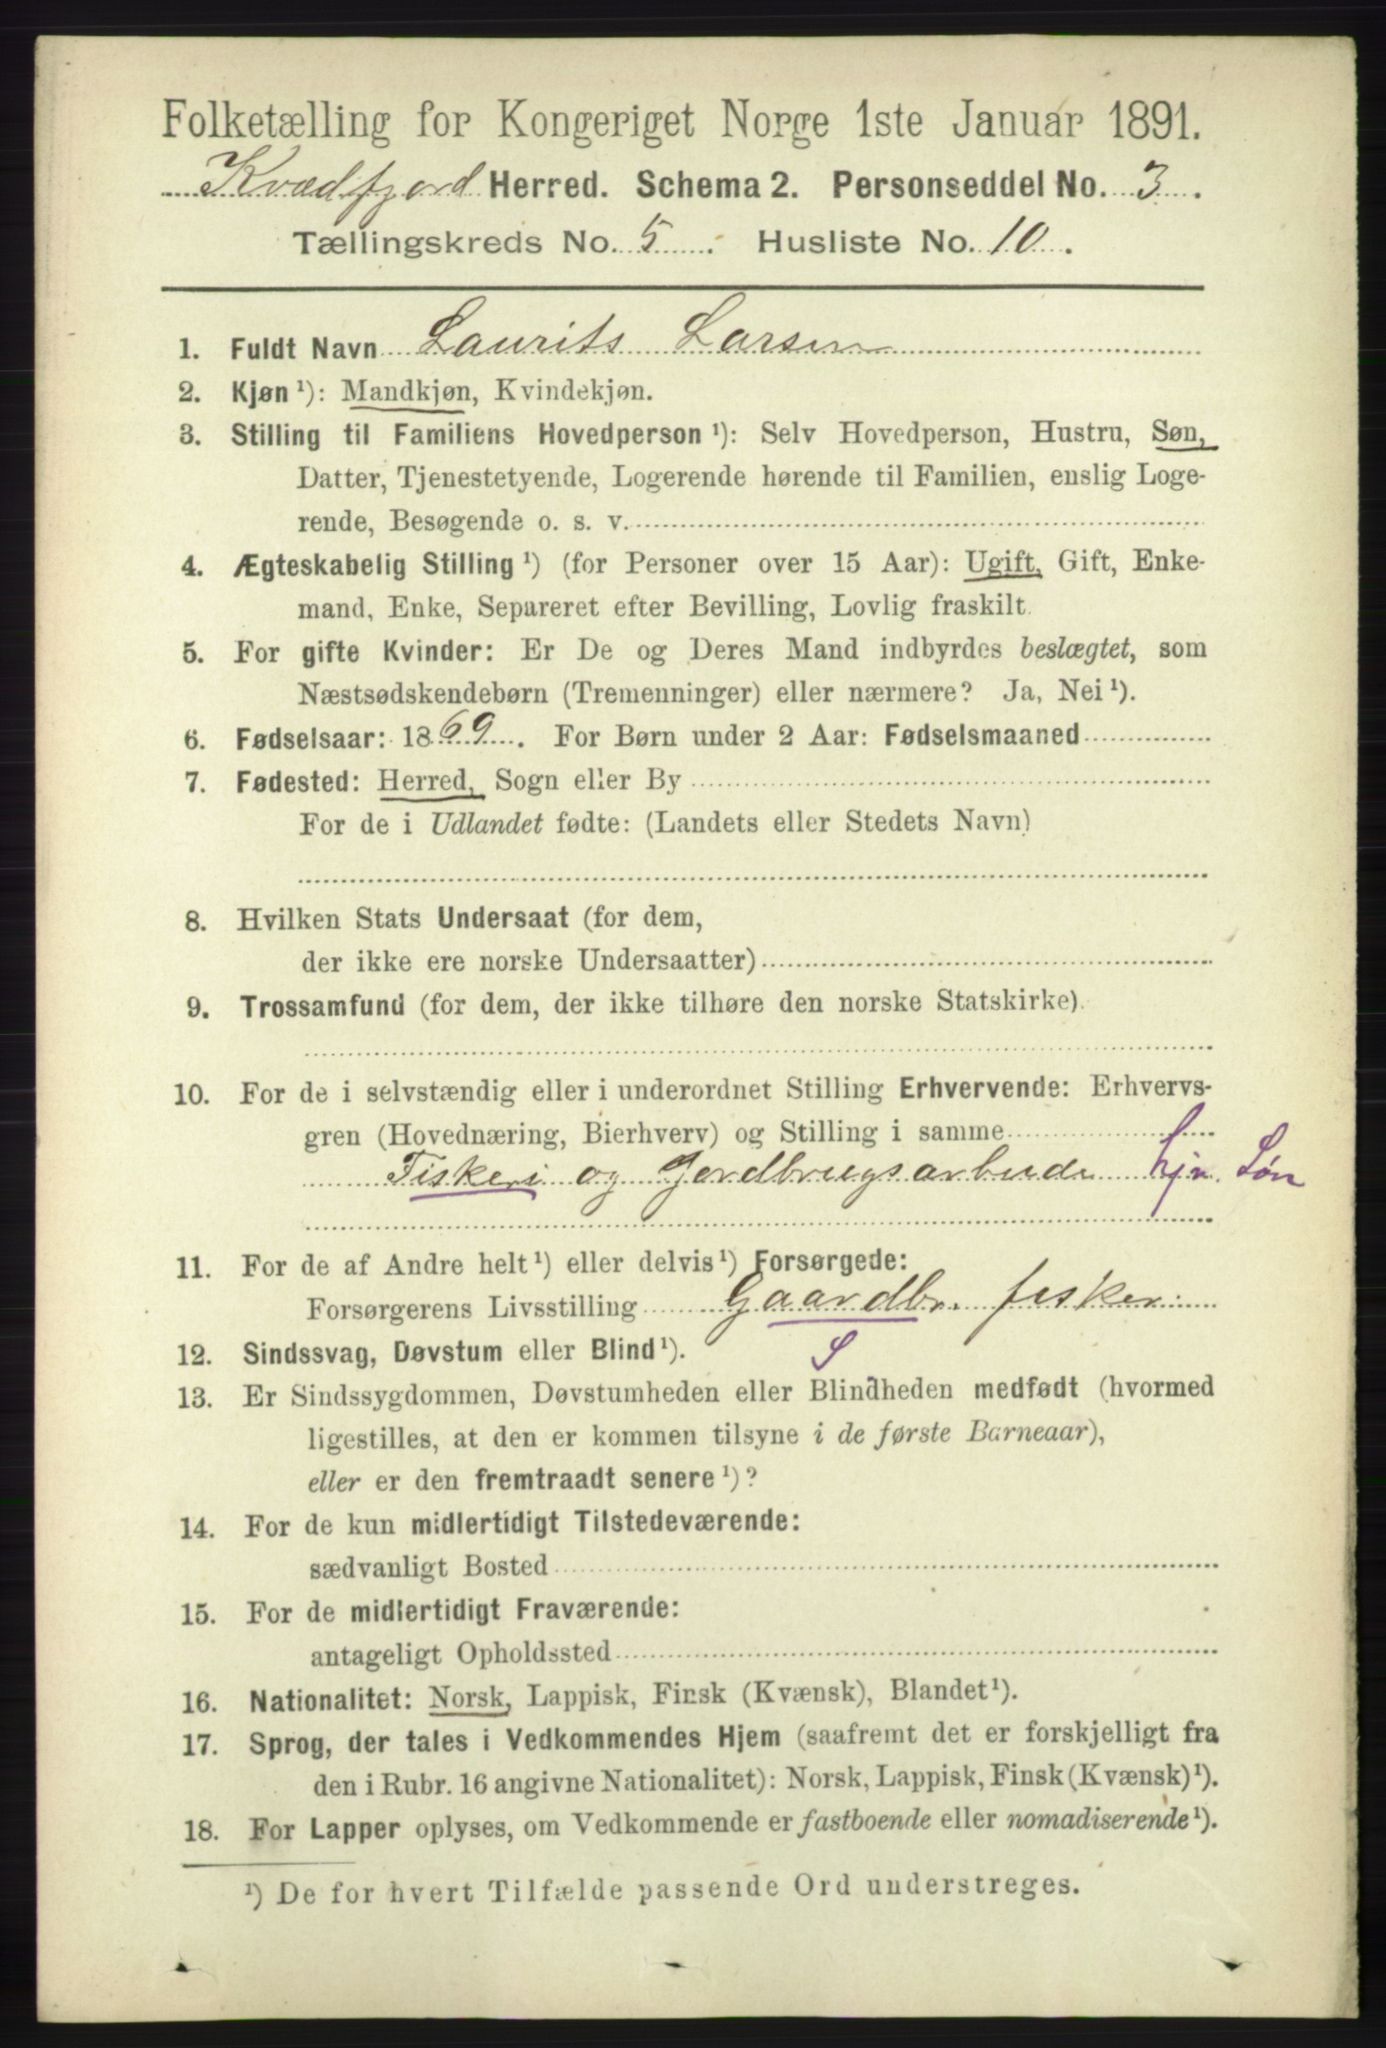 Folketælling for Kongeriget Norge 1ste Januar 1891.
Kvædfjord Herred. Schema 2. Personseddel No. 3.
Tællingskreds No. 5. Husliste No. 10.
1. Fuldt Navn Laurits Larsen
2. Kjøn ¹): Mandkjøn, Kvindekjøn.
3. Stilling til Familiens Hovedperson ¹): Selv Hovedperson, Hustru, Søn,
Datter, Tjenestetyende, Logerende hørende til Familien, enslig Loge-
rende, Besøgende o. s. v.
4. Ægteskabelig Stilling ¹) (for Personer over 15 Aar): Ugift, Gift, Enke-
mand, Enke, Separeret efter Bevilling, Lovlig fraskilt.
5. For gifte Kvinder: Er De og Deres Mand indbyrdes beslægtet, som
Næstsødskendebørn (Tremenninger) eller nærmere? Ja, Nei ¹).
6. Fødselsaar: 1869. For Børn under 2 Aar: Fødselsmaaned
7. Fødested: Herred, Sogn eller By
For de i Udlandet fødte: (Landets eller Stedets Navn)
8. Hvilken Stats Undersaat (for dem,
der ikke ere norske Undersaatter)
9. Trossamfund (for dem, der ikke tilhøre den norske Statskirke).
10. For de i selvstændig eller i underordnet Stilling Erhvervende: Erhvervs-
gren (Hovednæring, Bierhverv) og Stilling i samme
Fiskeri og Jordbrugsarbeide hjv. Søn
11. For de af Andre helt ¹) eller delvis ¹) Forsørgede:
Forsørgerens Livsstilling Gaardbr. fisker
S
12. Sindssvag, Døvstum eller Blind ¹).
13. Er Sindssygdommen, Døvstumheden eller Blindheden medfødt (hvormed
ligestilles, at den er kommen tilsyne i de første Barneaar),
eller er den fremtraadt senere ¹)?
14. For de kun midlertidigt Tilstedeværende:
sædvanligt Bosted
15. For de midlertidigt Fraværende:
antageligt Opholdssted
16. Nationalitet: Norsk, Lappisk, Finsk (Kvænsk), Blandet ¹).
17. Sprog, der tales i Vedkommendes Hjem (saafremt det er forskjelligt fra
den i Rubr. 16 angivne Nationalitet): Norsk, Lappisk, Finsk (Kvænsk) ¹).
18. For Lapper oplyses, om Vedkommende er fastboende eller nomadiserende ¹).
¹) De for hvert Tilfælde passende Ord understreges.